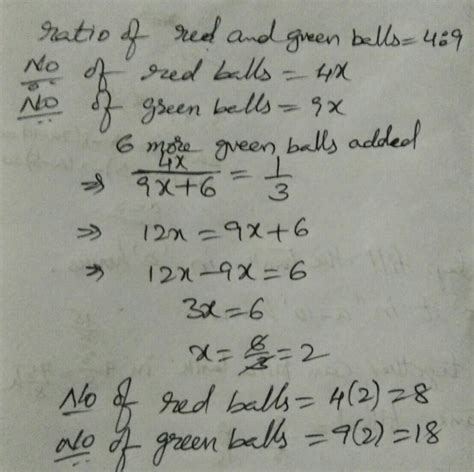 ratio of red and green balls = 4:9
No of red balls = 4x
No of green balls = 9x
6 more green balls added
⇒ 4x/9x+6 = 1/3
⇒ 12x = 9x+6
⇒ 12x-9x = 6
3x = 6
x = 6/3 = 2
No of red balls = 4(2) = 8
No of green balls = 9(2) = 18